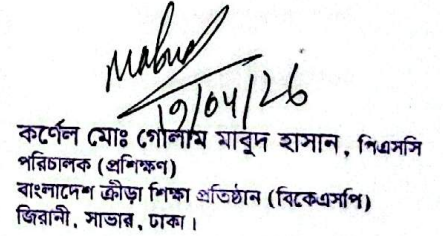 Mabud
19/04/26
কর্ণেল মোঃ গোলাম মাবুদ হাসান, পিএসসি
পরিচালক (প্রশিক্ষণ)
বাংলাদেশ ক্রীড়া শিক্ষা প্রতিষ্ঠান (বিকেএসপি)
জিরানী, সাভার, ঢাকা।